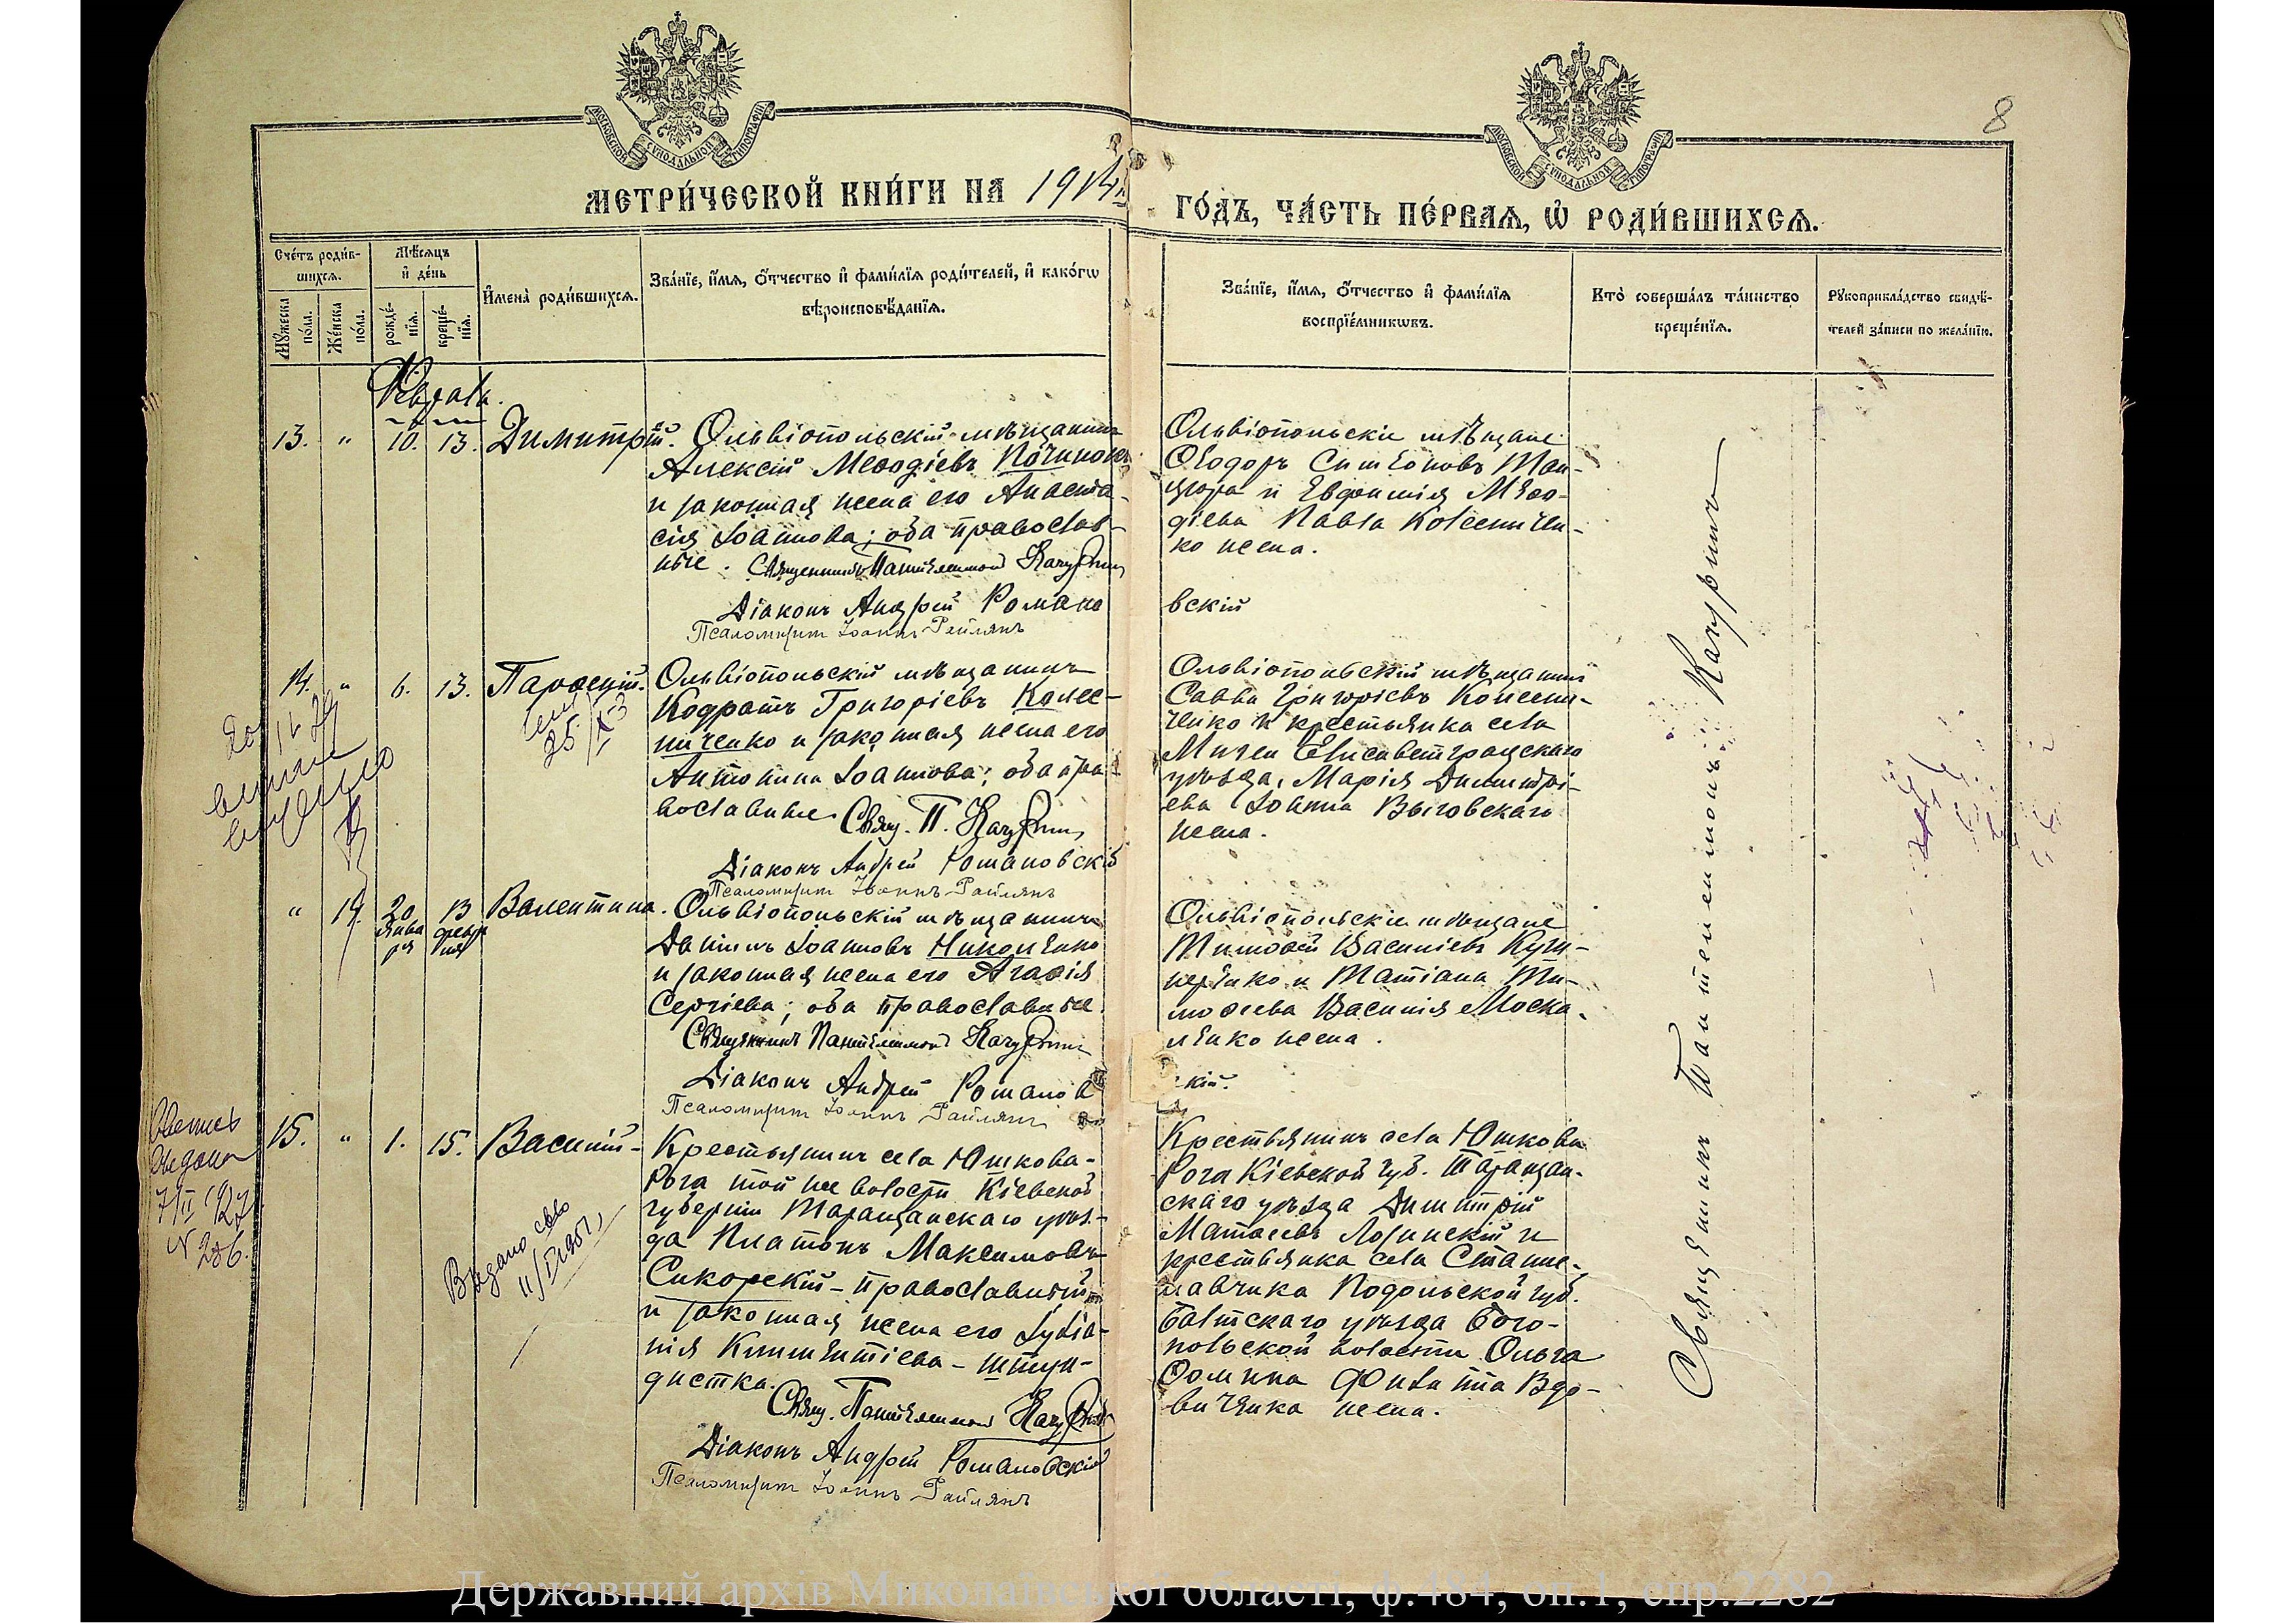 МОСКОВСКОЙ СѴНОДАЛЬНОЙ ТИПОГРАФІИ
МОСКОВСКОЙ СѴНОДАЛЬНОЙ ТИПОГРАФІИ
8
МЕТРИ́ЧЕСКОЙ КНИ́ГИ НА 1914й
ГО́ДЪ, ЧА́СТЬ ПЕ́РВАѦ, Ѡ РОДИ́ВШИХСѦ.
Сче́тъ роди́в-
шихсѧ.
Мꙋ́жеска по́ла.
Же́нска по́ла.
Мѣ́сѧцъ
и҆ де́нь
рожде́-
нїѧ.
креще́-
нїѧ.
И҆мена̀ роди́вшихсѧ.
Зва́нїе, и҆́мѧ, ѻ҆́тчество и҆ фами́лїѧ роди́телей, и҆ како́гѡ
вѣроисповѣ́данїѧ.
Зва́нїе, и҆́мѧ, ѻ҆́тчество и҆ фами́лїѧ
воспрїе́мникѡвъ.
Кто̀ соверша́лъ та́инство
креще́нїѧ.
Рꙋкоприкла́дство свидѣ́-
телей за́писи по жела́нїю.
Февраль.
13. " 10. 13. Димитрій.
Ольвіопольскій мѣщанинъ
Алексій Меѳодіевъ Починокъ
и законная жена его Анаста-
сія Іоаннова; оба православ-
ные. Священникъ Пантелеимон Качурин
Діаконъ Андрей Романо
Псаломщик Іоаннъ Райлянъ
Ольвіопольскіе мѣщане
Ѳеодоръ Симеоновъ Ман-
зюра и Евфимія Меѳо-
діева Павла Колесничен-
ко жена.
вскій
14. " 6. 13. Парѳеній.
25/IX-3
Ольвіопольскій мѣщанинъ
Кодратъ Григоріевъ Колес-
ниченко и законная жена его
Антонина Іоаннова; оба пра-
вославные. Свящ. П. Качурин
Діаконъ Андрей Романовскій
Псаломщик Іоаннъ Райлянъ
Ольвіопольскій мѣщанинъ
Савва Григоріевъ Колесни-
ченко и крестьянка села
Мигеи Елисаветградскаго
уѣзда, Марія Димитрі-
ева Іоанна Выговскаго
жена.
" 14. 20 января 13 февраля Валентина.
Ольвіопольскій мѣщанинъ
Даніилъ Іоанновъ Николенко
и законная жена его Агафія
Сергіева; оба православные.
Священникъ Пантелеимон Качурин
Діаконъ Андрей Романов
Псаломщик Іоаннъ Райлянъ
Ольвіопольскіе мѣщане
Тимоѳей Василіевъ Куш-
неренко и Татіана Ти-
моѳеева Василія Моска-
ленко жена.
скій.
15. " 1. 15. Василій-
7/II 1927
N 286.
Выдано св-во
11/IV 1951,
Крестьянинъ села Юшкова-
Рога той же волости Кіевской
губерніи Таращанскаго уѣз-
да Платонъ Максимовъ
Сикорскій - православный
и законная жена его Іуліа-
нія Климентіева - штун-
дистка.
Свящ. Пантелеимон Качурин
Діаконъ Андрей Романовскій
Псаломщик Іоаннъ Райлянъ
Крестьянинъ села Юшкова
Рога Кіевской губ. Таращан-
скаго уѣзда Димитрій
Матѳеевъ Лозинскій и
крестьянка села Станис-
лавчика Подольской губ.
Балтскаго уѣзда Бого-
польской волости Ольга
Ѳомина Филиппа Вдо-
виченка жена.
Священникъ Пантелеимонъ Качуринъ
Державний архів Миколаївської області, ф.484, оп.1, спр.2282